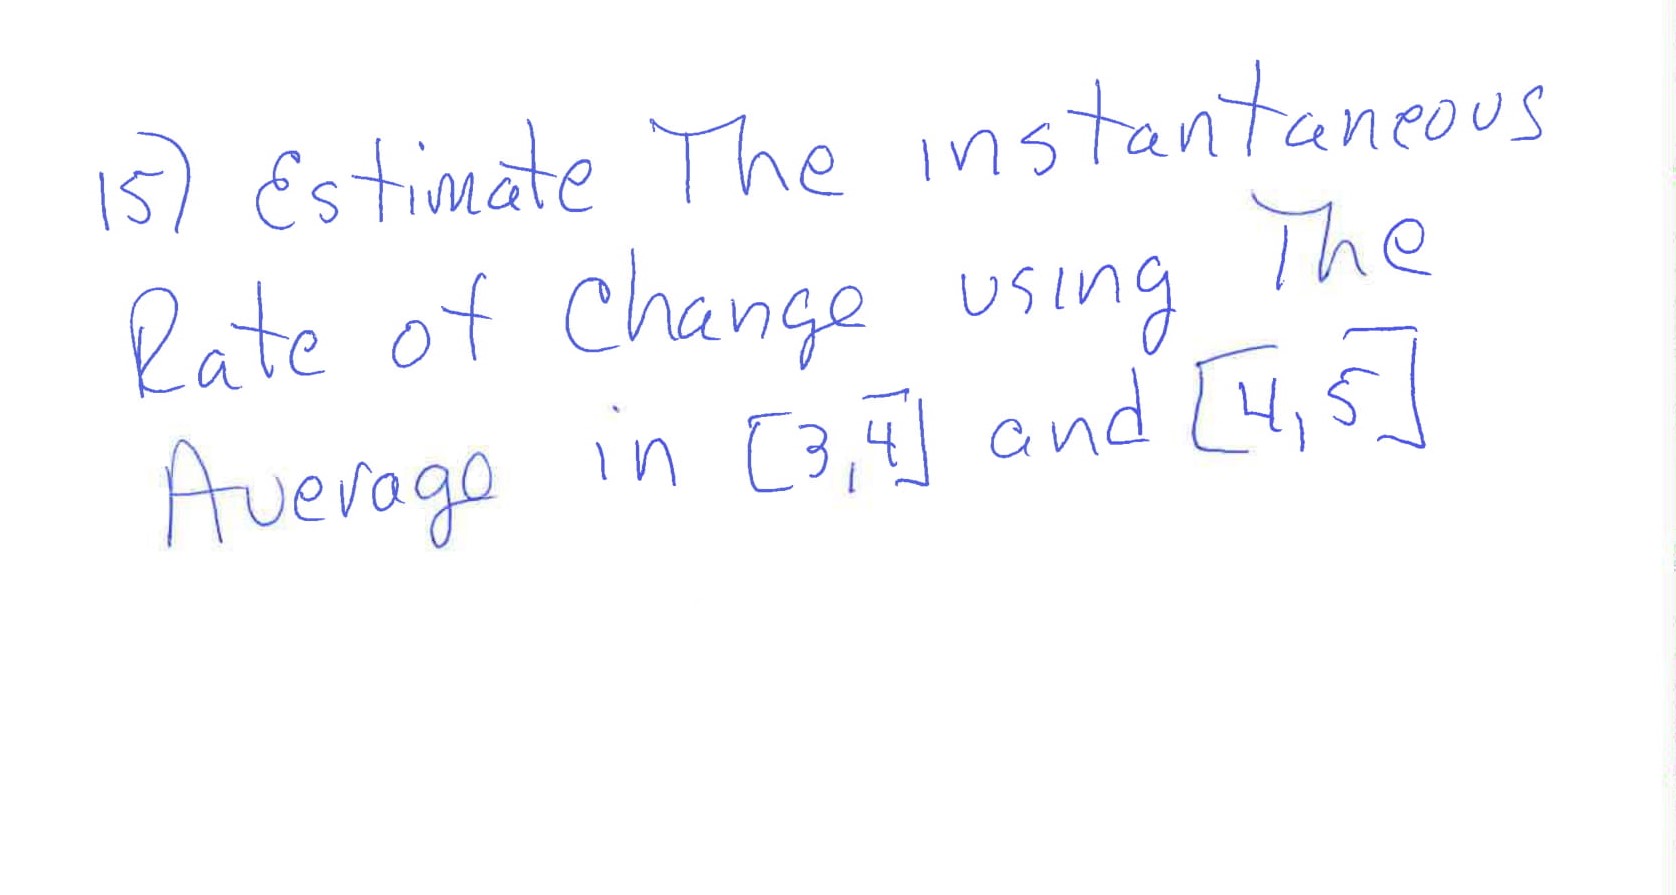 15) Estimate The instantaneous
Rate of Change using The
Average in [3,4] and [4,5]